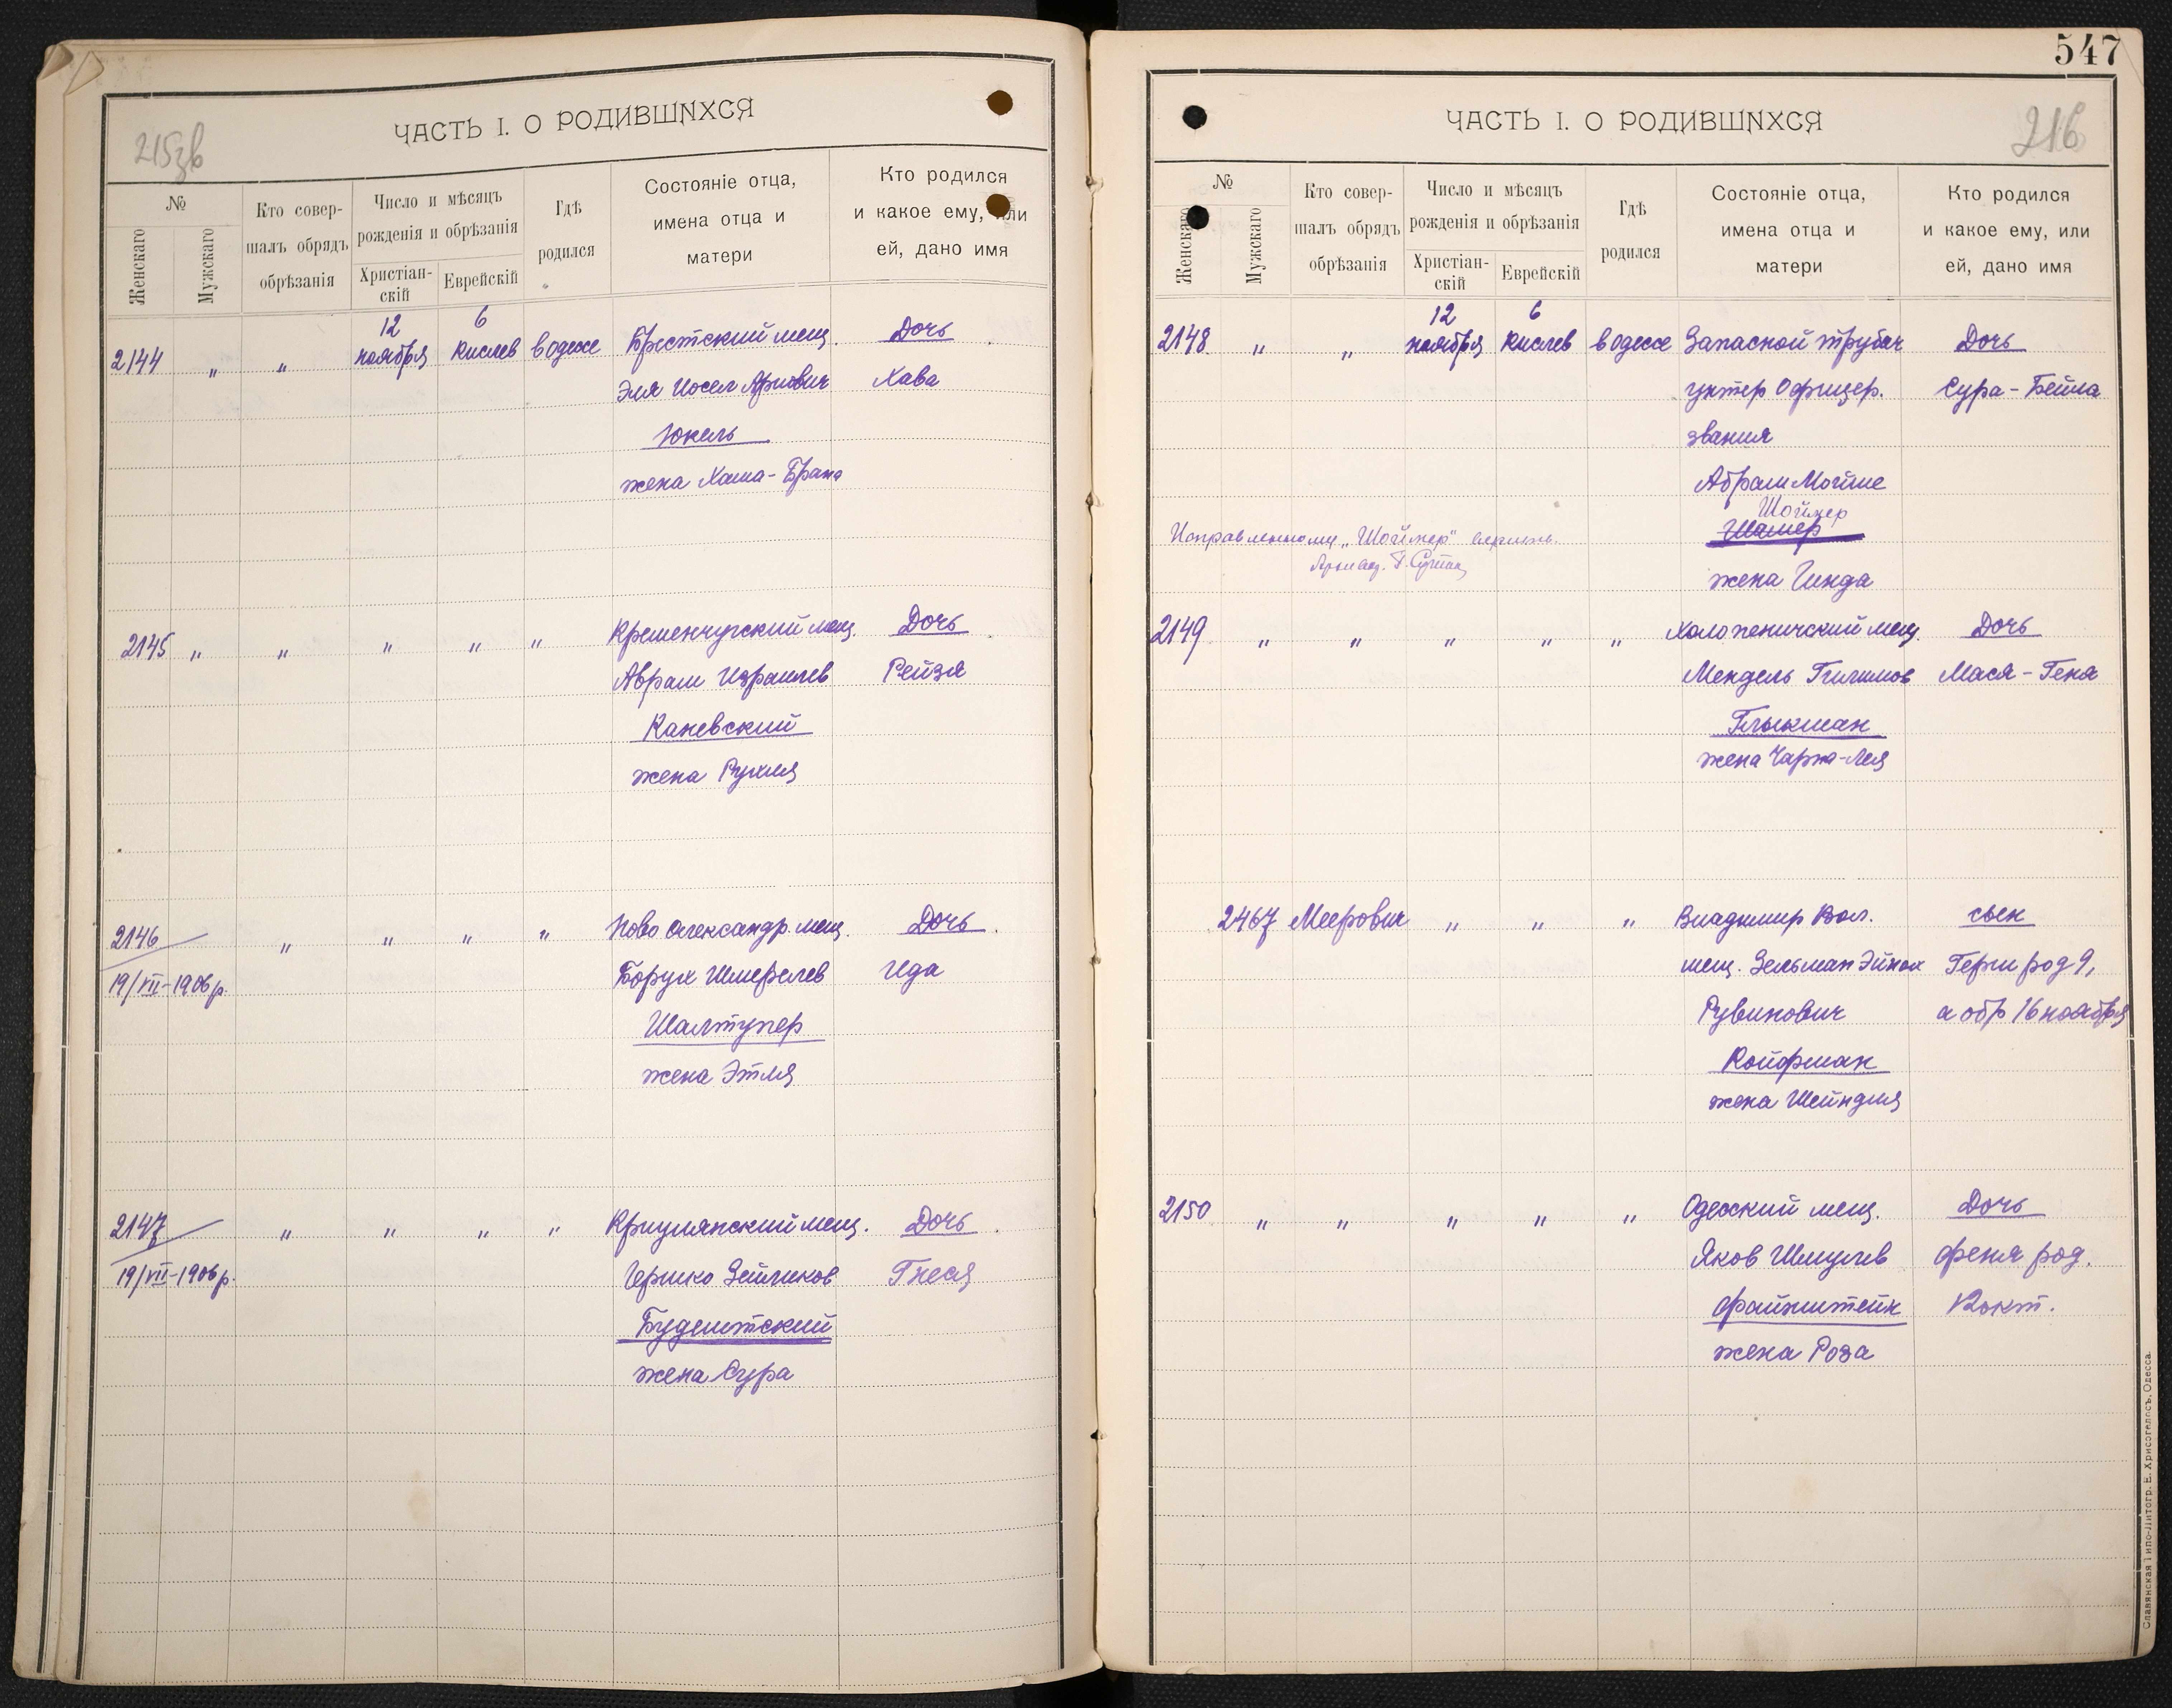 ЧАСТЬ I. О РОДИВШИХСЯ
215зв
№
Женскаго
Мужскаго
Кто совер-
шалъ обрядъ
обрѣзанія
Число и мѣсяцъ
рожденія и обрѣзанія
Христіан-
скій
Еврейскій
Гдѣ
родился
Состояніе отца,
имена отца и
матери
Кто родился
и какое ему, или
ей, дано имя
2144 " " 12 ноября 6 Кислев в одессе Брестский мещ. Дочь
Эля Иосел Ариович Хава
Юкель
жена Хаша-Брана
2145 " " " " " Кременчугский мещ. Дочь
Авраам Израилев Рейзя
Каневский
жена Рухля
2146 " " " " Ново Александр. мещ. Дочь
19/VII-1906 р. Борух Шмерелев Ида
Шалтупер
жена Этля
2147 " " " " Криулянский мещ. Дочь
19/VII-1906 р. Гершко Зейликов Гнеся
Будештский
жена Сура
547
ЧАСТЬ I. О РОДИВШИХСЯ
216
№
Женскаго
Мужскаго
Кто совер-
шалъ обрядъ
обрѣзанія
Число и мѣсяцъ
рожденія и обрѣзанія
Христіан-
скій
Еврейскій
Гдѣ
родился
Состояніе отца,
имена отца и
матери
Кто родился
и какое ему, или
ей, дано имя
2148 " " 12 ноября 6 Кислев в одессе Запасной трубач Дочь
унтер Офицер. Сура-Бейла
звания
Абрам Мойше
Шоймер
Шамер
Исправленному „Шоймер" верить.
жена Гинда
2149 " " " " " Холопеничский мещ. Дочь
Мендель Гилимов Мася-Геня
Глыкман
жена Чарна-Лея
2467 Меерович " " " Владимир Вол. сын
мещ. Зельман Эйнох Герш род 9,
Рувинович а обр 16 ноября
Койфман
жена Шейндля
2150 " " " " " Одесский мещ. Дочь
Яков Шмулев Феня род.
Файнштейн 12 окт.
жена Роза
Славянская Типо-Литогр. Е. Хрисогелосъ, Одесса.